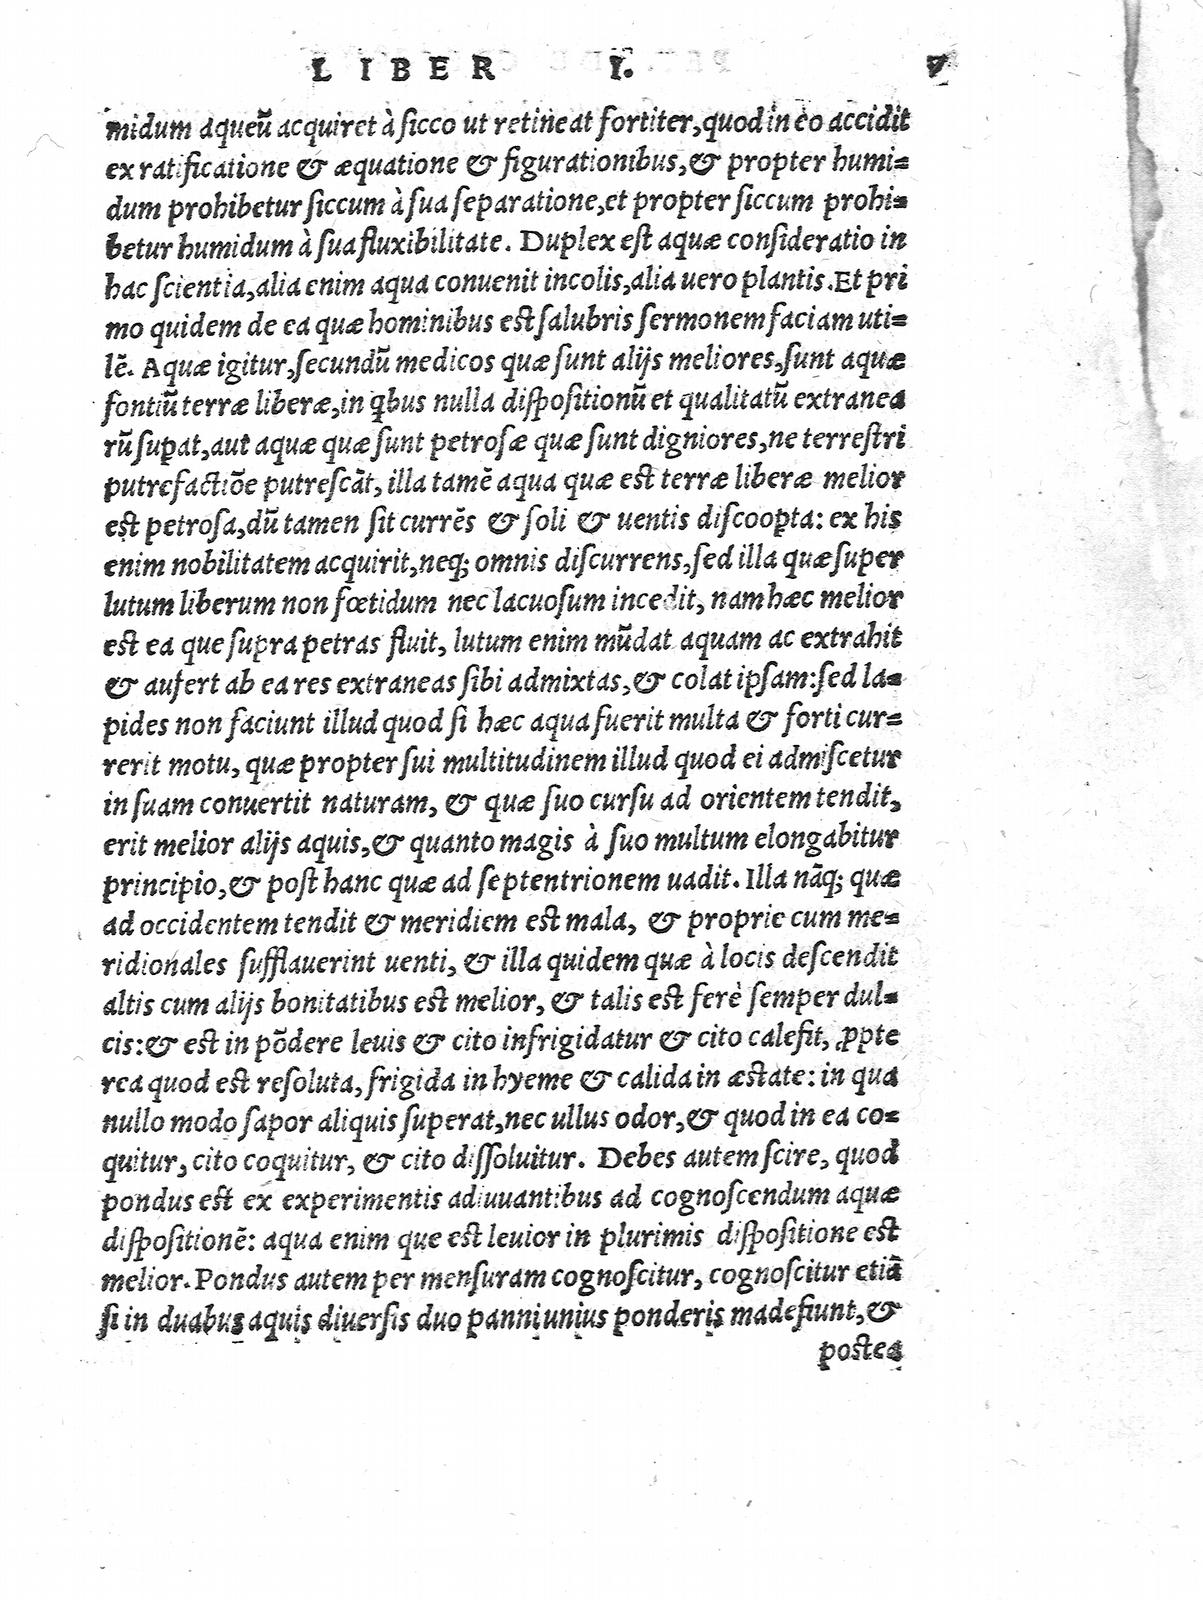 LIBER I. 7
midum aqueũ acquiret à ſicco ut retineat fortiter, quod in eo accidit
ex ratificatione & æquatione & figurationibus, & propter humi=
dum prohibetur ſiccum à ſua ſeparatione, et propter ſiccum prohi=
betur humidum à ſua fluxibilitate. Duplex eſt aquæ conſideratio in
hac ſcientia, alia enim aqua conuenit incolis, alia uero plantis. Et pri
mo quidem de ea quæ hominibus eſt ſalubris ſermonem faciam uti=
lẽ. Aquæ igitur, ſecundũ medicos quæ ſunt alijs meliores, ſunt aquæ
fontiũ terræ liberæ, in q̃bus nulla diſpoſitionũ et qualitatũ extranea
rũ ſuꝑat, aut aquæ quæ ſunt petroſæ quæ ſunt digniores, ne terreſtri
putrefactiõe putreſcãt, illa tamẽ aqua quæ eſt terræ liberæ melior
eſt petroſa, dũ tamen ſit currẽs & ſoli & uentis diſcooꝑta: ex his
enim nobilitatem acquirit, neq; omnis diſcurrens, ſed illa quæ ſuper
lutum liberum non fœtidum nec lacuoſum incedit, nam hæc melior
eſt ea que ſupra petras fluit, lutum enim mũdat aquam ac extrahit
& aufert ab ea res extraneas ſibi admixtas, & colat ipſam: ſed la=
pides non faciunt illud quod ſi hæc aqua fuerit multa & forti cur=
rerit motu, quæ propter ſui multitudinem illud quod ei admiſcetur
in ſuam conuertit naturam, & quæ ſuo curſu ad orientem tendit,
erit melior alijs aquis, & quanto magis à ſuo multum elongabitur
principio, & poſt hanc quæ ad ſeptentrionem uadit. Illa nãq; quæ
ad occidentem tendit & meridiem eſt mala, & proprie cum me=
ridionales ſufflauerint uenti, & illa quidem quæ à locis deſcendit
altis cum alijs bonitatibus eſt melior, & talis eſt ferè ſemper dul=
cis: & eſt in põdere leuis & cito infrigidatur & cito calefit, ꝓpte
rea quod eſt reſoluta, frigida in hyeme & calida in æſtate: in qua
nullo modo ſapor aliquis ſuperat, nec ullus odor, & quod in ea co=
quitur, cito coquitur, & cito diſſoluitur. Debes autem ſcire, quod
pondus eſt ex experimentis adiuuantibus ad cognoſcendum aquæ
diſpoſitionẽ: aqua enim que eſt leuior in plurimis diſpoſitione eſt
melior. Pondus autem per menſuram cognoſcitur, cognoſcitur etiã
ſi in duabus aquis diuerſis duo panni unius ponderis madefiunt, &
poſtea